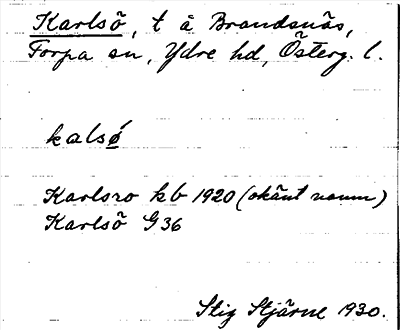 Karlsö, t å Brandsnäs,
Torpa sn, Ydre hd, Österg. l.
kalsǿ
Karlsro kb 1920 (okänt namn)
Karlsö G36
Stig Stjärne 1930.